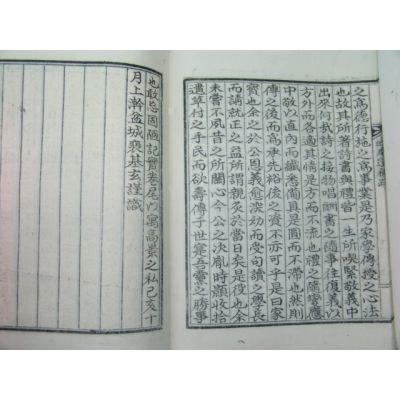 之高德行施之高事業是乃家學傳授之心法
也故其所著詩書與禮皆一生所喫緊敬義中
出來何哉詩之接物唱酬書之隨事往復義以
方外而各適其情是方而不流也禮之隨變應
中敬以直內而纖悉備具是圓而不滯也然則
傳之後而高承先裕後之資不亦可乎是曰家
寶也余之於公固義愈淡劣而受句讀之學長
而講就正之益所謂親炙於當日矣是役也余
未嘗不夙昔之所侗心今公之決胤時顯收拾
遺草付之手民而欲壽傳于世寔吾黨之勝事
也敢忘固陋記實卷尾以寓高景之私己亥十
月上澣盆城裵基玄謹識